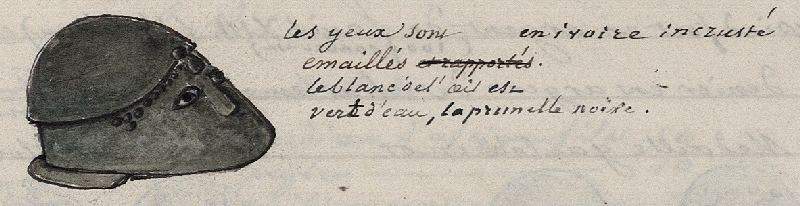 les yeux sont en ivoire incrusté
emaillés et rapportés.
le blanc de l'œil est
vert d'eau, la prunelle noire.